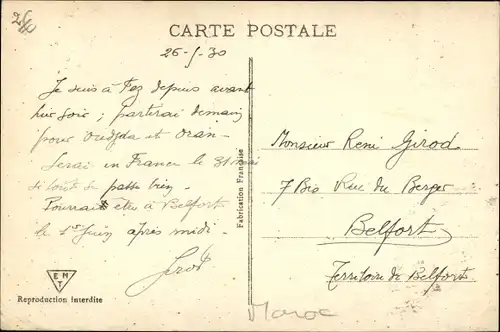 CARTE POSTALE
26-5-30
Je suis à Fez depuis avant
hier soir ; partirai demain
pour Oudjda et Oran -
Serai en France le 31 mai
si tout se passe bien -
Pourrais être à Belfort
le 1er juin après midi.
Girod
EMT
Reproduction interdite
Fabrication Française
Monsieur René Girod
7 Bis Rue du Berger
Belfort
Territoire de Belfort
Maroc